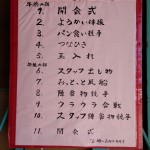 午前の部
1. 開会式
2. ようかい体操
3. パン食い競争
4. つなひき
5. 玉入れ
午後の部
6. スタッフ出し物
7. おっとっと風船
8. 障害物競争
9. クラウラ合戦
10. スタッフ障害物競争
11. 閉会式